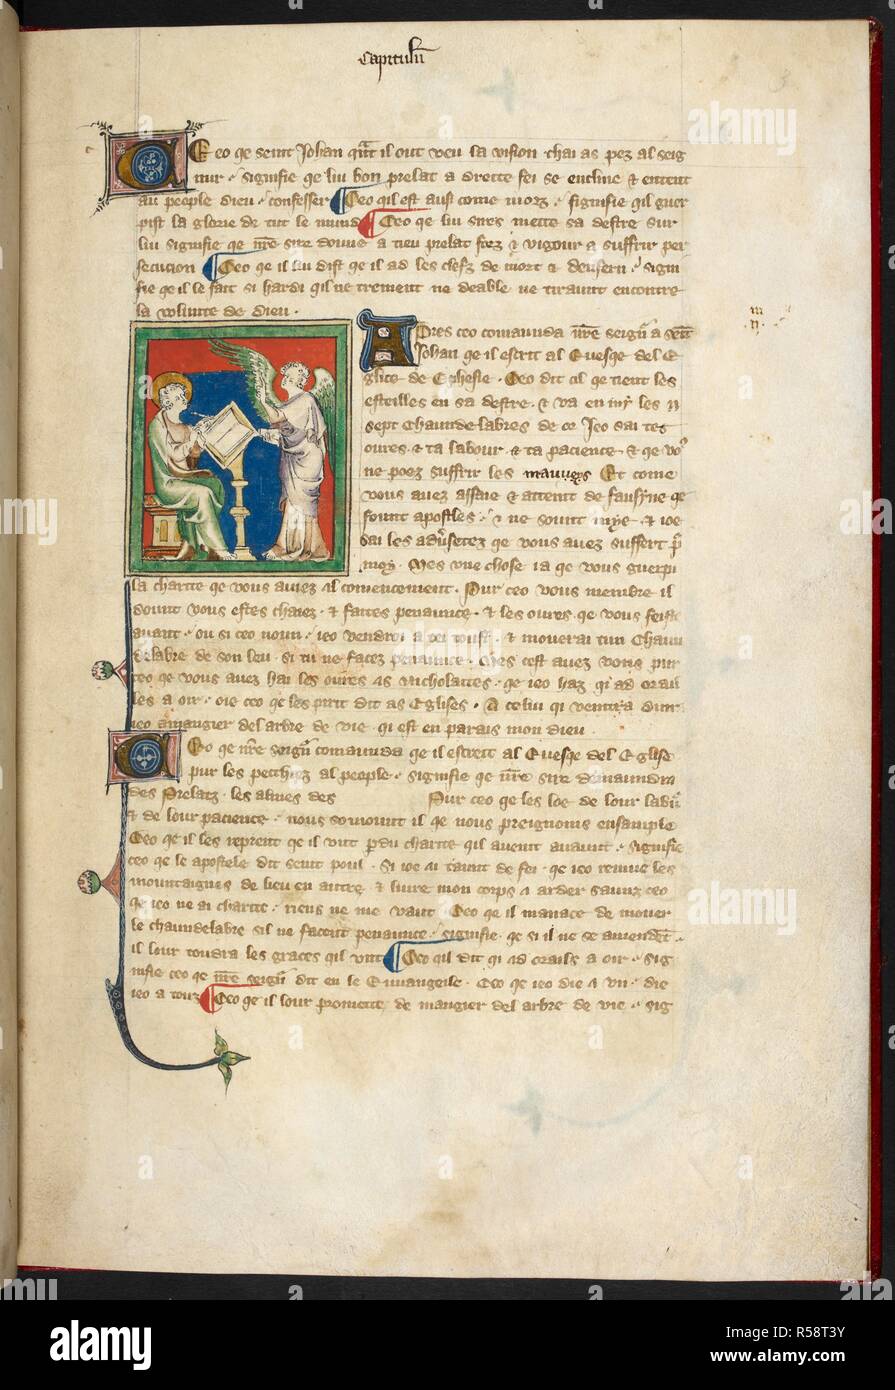 Capitulu͂
Ceo qe seint Johan qãt il out veu la vision chai as pez al seig
nur · signifie qe liu bon prelat a dreite fei se encline & entent
au people dieu · confesser Ceo qil est ausi come morz · signifie qil guer
pist la glorie de tut le mund Ceo qe liu sires mette sa destre sur
lui signifie qe nr̃e sire doune a tieu prelat forz & vigour a suffrir per
secucion Ceo qe il liu dist qe il ad les clefz de mort & denfern · signi
fie qe il le fait si hardi qil ne trement ne deable ne tiraunt encontre
la volunte de dieu ·
Apres ceo comaunda nr̃e seignur̃ a seĩt
Johan qe il escrit al Euesqe del E
glise de Ephesie · Ceo dit cil qe tient les
esteilles en sa destre · & va en my les
sept Chaundelabres de or Jeo sai tes
oures · & ta labour · & ta pacience & qe vo9
ne poez suffrir les mauueys Et come
vous auez assaie & atteint de fausyne qe
sount apostles · & ne sount mye · & ioe
sai les adũsetez qe vous auez suffert p̃
mey · Mes vne chose ia qe vous guerpi
la charite qe vous auiez al comencement · Pur ceo vous membre il
dount vous estes chaiez · & faites penaunce · & les oures qe vous feist
auant · ou si ceo noun · ieo vendroi a tei toust · & mouerai tun Chaun
delabre de son leu · si tu ne facez penaunce · Mes cest auez vous pur
ceo qe vous auez hai les oures as Nicholaites · qe ieo haz qi ad orail
les a oir · oie ceo qe lespirit dit as Eglises · A celui qi ventra durr
ieo amangier del arbre de vie qi est en parais mon dieu ·
Ceo qe nr̃e seignur̃ comaunda qe il escreit al Euesqe del Eglise
pur les pecchez al people · signifie qe nr̃e sire demaundra
des Prelatz · les almes des Pur ceo qe les loe de lour labur̃
& de lour pacience · nous somount il qe nous preignoms ensample
Ceo qe il les reprent qe il vnt pdu charite qil auient auaunt · signifie
ceo qe le apostele dit seint poul · Si ioe ai taunt de fei · qe ieo remue les
mountaignes de lieu en autre & liure mon corps a arder saunz ceo
qe ieo ne ai charite · riens ne me vaut Ceo qe il manace de mouer
le chaundelabre sil ne facent penaunce · signifie · qe si il ne se amendẽt ·
il lour toudra les graces qil vnt Ceo qil dit qi ad orails a oir · sig
nifie ceo qe nr̃e seignur̃ dit en le Euuangeile · Ceo qe ieo die a vn · die
ieo a touz Ceo qe il lour promette de mangier del arbre de vie · sig
alamy
Image ID: R58T3Y
www.alamy.com